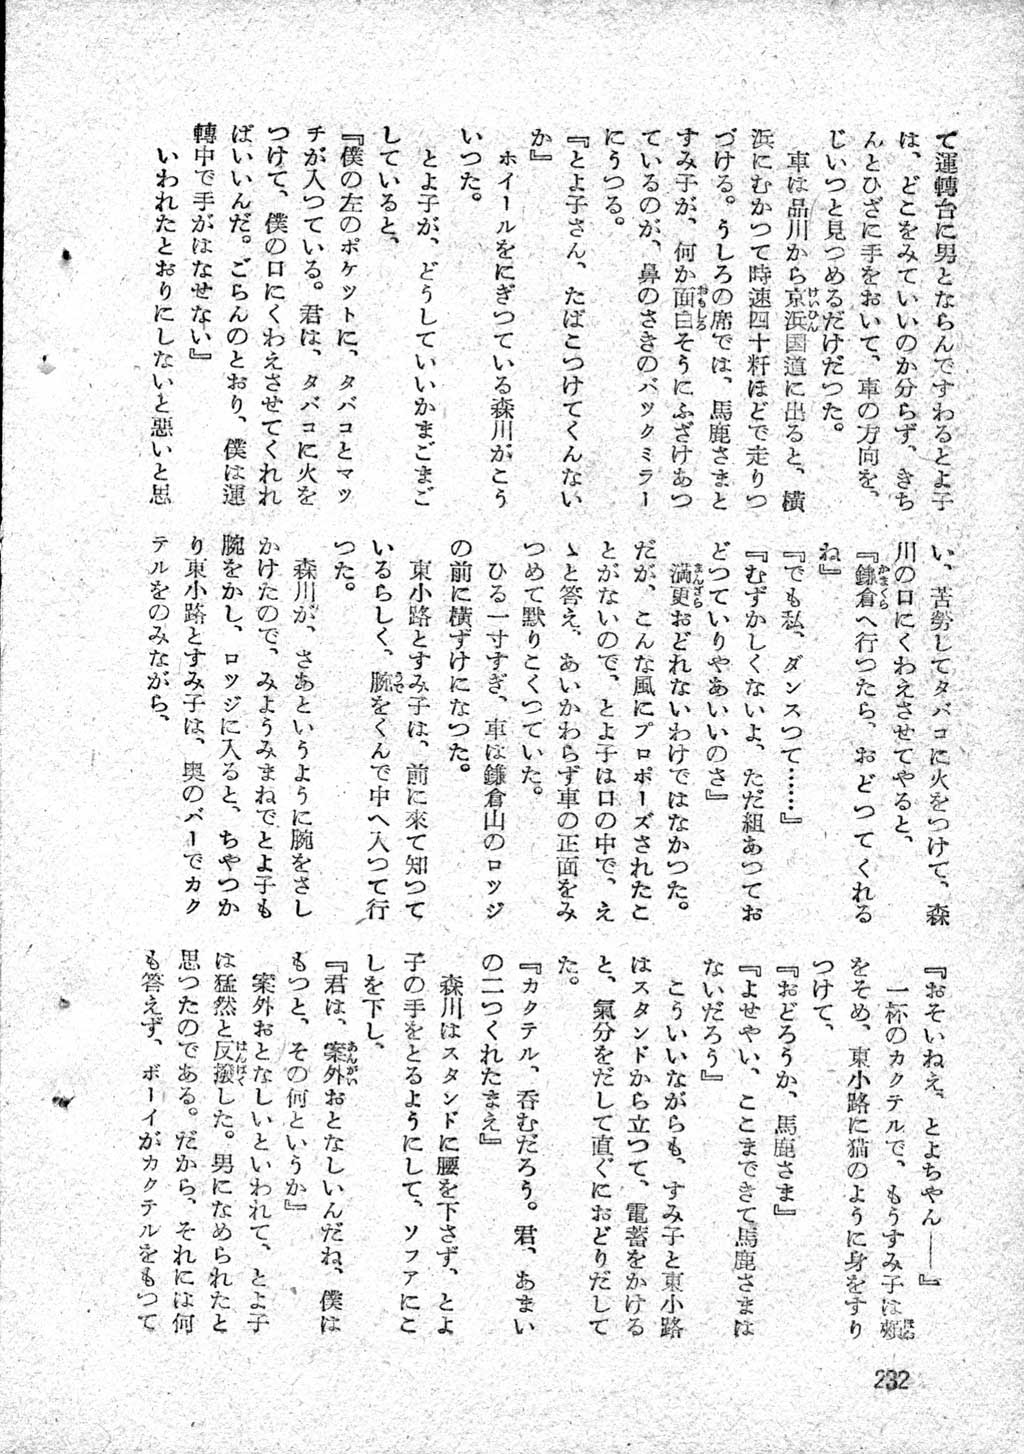 て運轉台に男とならんですわるとよ子
は、どこをみていいのか分らず、きち
んとひざに手をおいて、車の方向を、
じいつと見つめるだけだつた。
車は品川から京浜国道に出ると、横
浜にむかつて時速四十粁ほどで走りつ
づける。うしろの席では、馬鹿さまと
すみ子が、何か面白そうにふざけあつ
ているのが、鼻のさきのバックミラー
にうつる。
『とよ子さん、たばこつけてくんない
か』
ホイールをにぎつている森川がこう
いつた。
とよ子が、どうしていいかまごまご
していると、
『僕の左のポケットに、タバコとマッ
チが入つている。君は、タバコに火を
つけて、僕の口にくわえさせてくれれ
ばいいんだ。ごらんのとおり、僕は運
轉中で手がはなせない』
いわれたとおりにしないと悪いと思
い、苦勞してタバコに火をつけて、森
川の口にくわえさせてやると、
『鎌倉へ行つたら、おどつてくれる
ね』
『でも私、ダンスつて……』
『むずかしくないよ、ただ組あつてお
どつていりやあいいのさ』
満更おどれないわけではなかつた。
だが、こんな風にプロポーズされたこ
とがないので、とよ子は口の中で、え
ゝと答え、あいかわらず車の正面をみ
つめて默りこくつていた。
ひる一寸すぎ、車は鎌倉山のロッジ
の前に横ずけになつた。
東小路とすみ子は、前に來て知つて
いるらしく、腕をくんで中へ入つて行
つた。
森川が、さあというように腕をさし
かけたので、みようみまねでとよ子も
腕をかし、ロッジに入ると、ちやつか
り東小路とすみ子は、奥のバーでカク
テルをのみながら、
『おそいねえ、とよちやん――』
一杯のカクテルで、もうすみ子は頬
をそめ、東小路に猫のように身をすり
つけて、
『おどろうか、馬鹿さま』
『よせやい、ここまできて馬鹿さまは
ないだろう』
こういいながらも、すみ子と東小路
はスタンドから立つて、電蓄をかける
と、氣分をだして直ぐにおどりだして
た。
『カクテル、呑むだろう。君、あまい
の二つくれたまえ』
森川はスタンドに腰を下さず、とよ
子の手をとるようにして、ソファにこ
しを下し、
『君は、案外おとなしいんだね、僕は
もつと、その何というか』
案外おとなしいといわれて、とよ子
は猛然と反撥した。男になめられたと
思つたのである。だから、それには何
も答えず、ボーイがカクテルをもつて
232